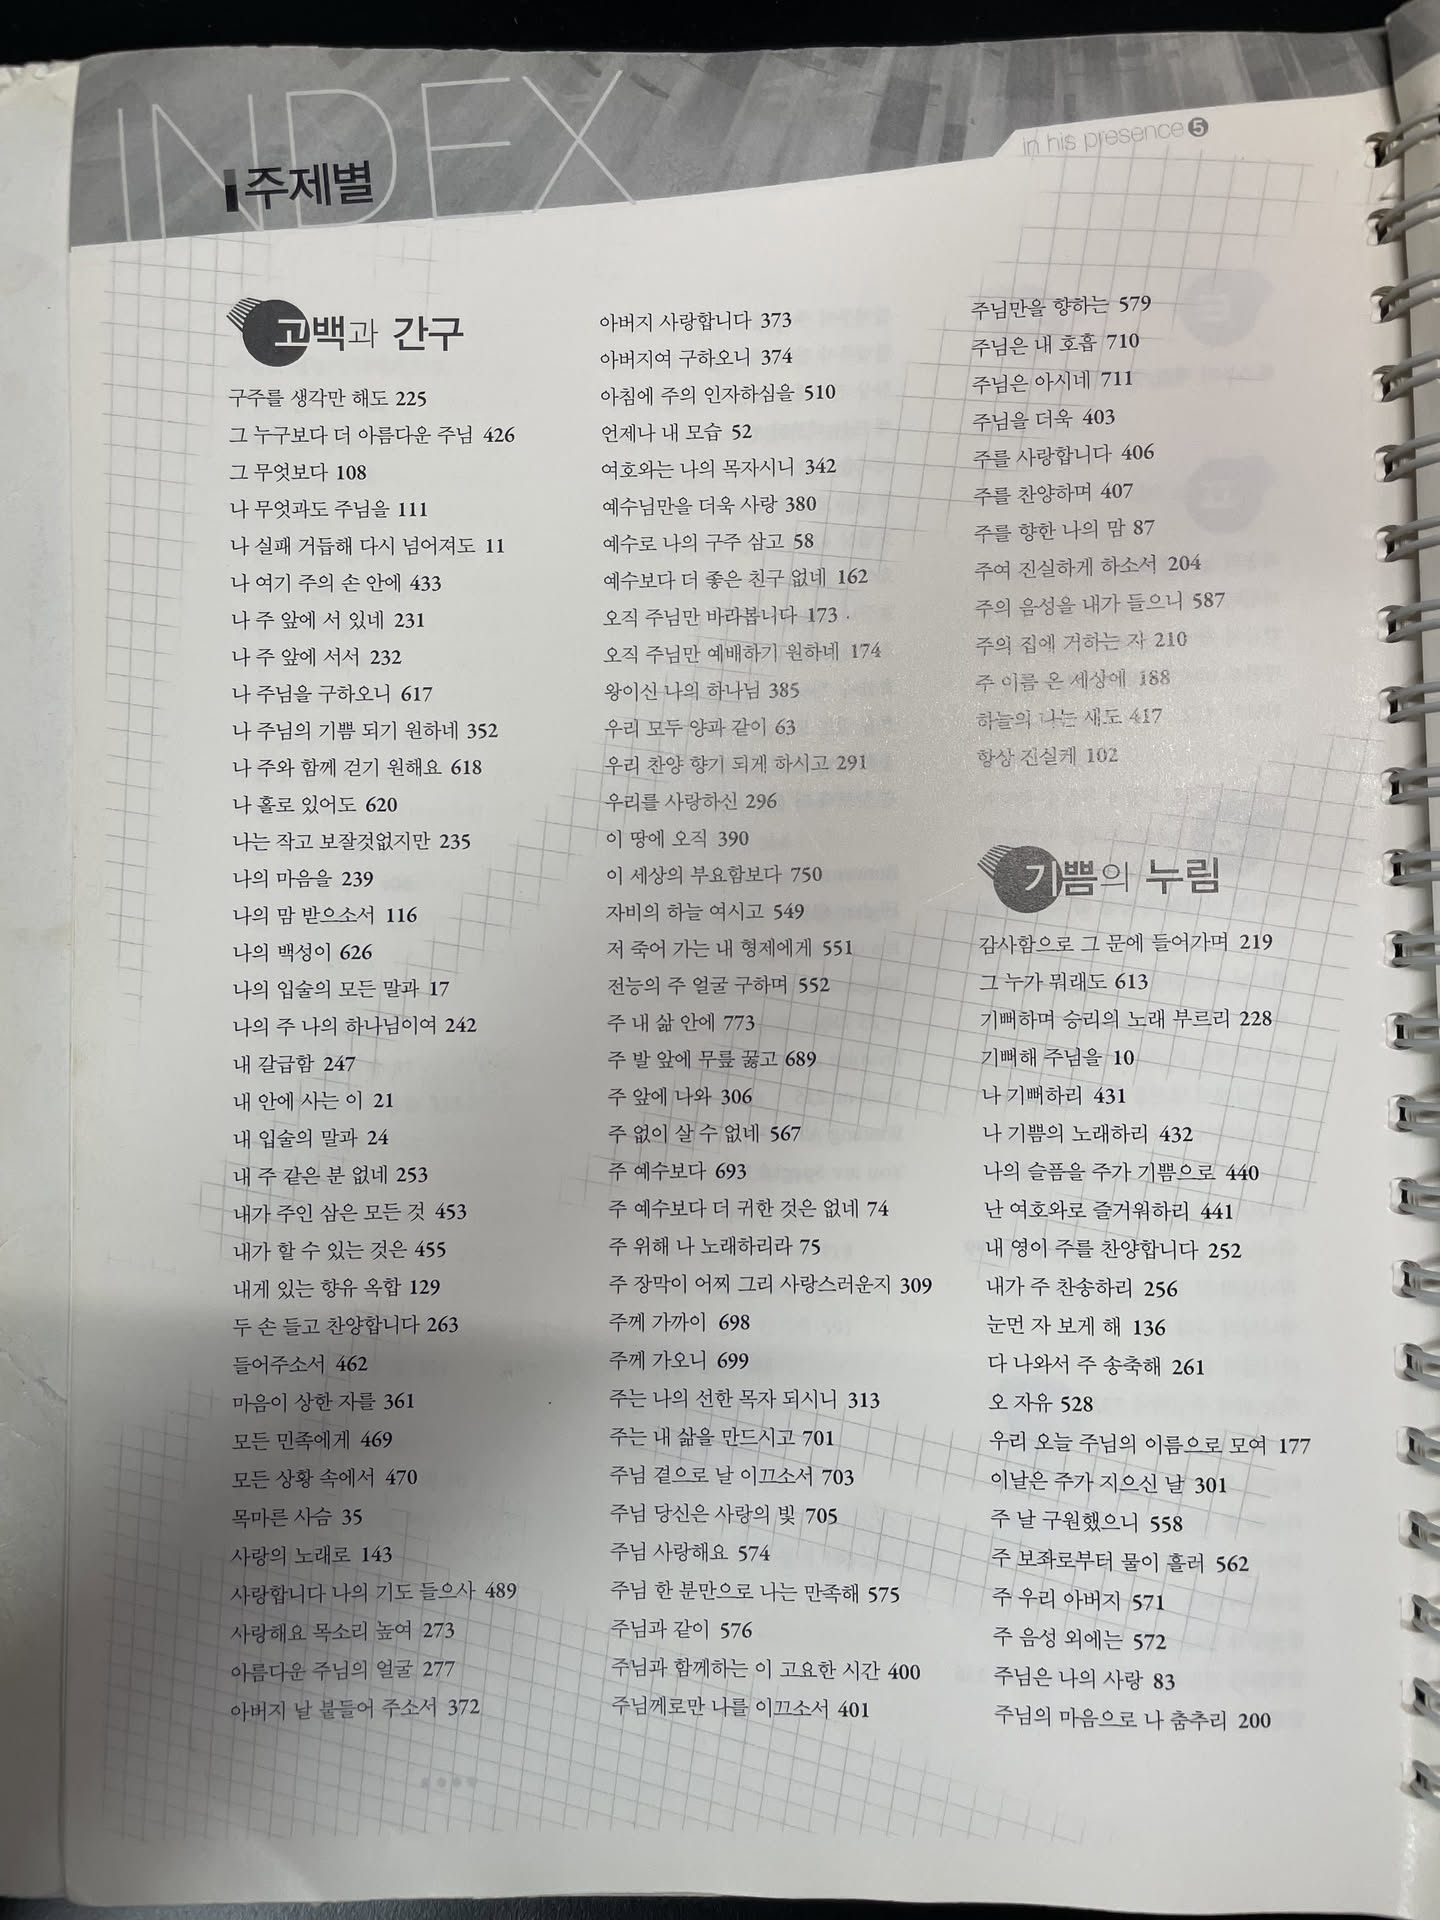 INDEX
주제별
in his presence 5
고백과 간구
구주를 생각만 해도 225
그 누구보다 더 아름다운 주님 426
그 무엇보다 108
나 무엇과도 주님을 111
나 실패 거듭해 다시 넘어져도 11
나 여기 주의 손 안에 433
나 주 앞에 서 있네 231
나 주 앞에 서서 232
나 주님을 구하오니 617
나 주님의 기쁨 되기 원하네 352
나 주와 함께 걷기 원해요 618
나 홀로 있어도 620
나는 작고 보잘것없지만 235
나의 마음을 239
나의 맘 받으소서 116
나의 백성이 626
나의 입술의 모든 말과 17
나의 주 나의 하나님이여 242
내 갈급함 247
내 안에 사는 이 21
내 입술의 말과 24
내 주 같은 분 없네 253
내가 주인 삼은 모든 것 453
내가 할 수 있는 것은 455
내게 있는 향유 옥합 129
두 손 들고 찬양합니다 263
들어주소서 462
마음이 상한 자를 361
모든 민족에게 469
모든 상황 속에서 470
목마른 사슴 35
사랑의 노래로 143
사랑합니다 나의 기도 들으사 489
사랑해요 목소리 높여 273
아름다운 주님의 얼굴 277
아버지 날 붙들어 주소서 372
아버지 사랑합니다 373
아버지여 구하오니 374
아침에 주의 인자하심을 510
언제나 내 모습 52
여호와는 나의 목자시니 342
예수님만을 더욱 사랑 380
예수로 나의 구주 삼고 58
예수보다 더 좋은 친구 없네 162
오직 주님만 바라봅니다 173
오직 주님만 예배하기 원하네 174
왕이신 나의 하나님 385
우리 모두 양과 같이 63
우리 찬양 향기 되게 하시고 291
우리를 사랑하신 296
이 땅에 오직 390
이 세상의 부요함보다 750
자비의 하늘 여시고 549
저 죽어 가는 내 형제에게 551
전능의 주 얼굴 구하며 552
주 내 삶 안에 773
주 발 앞에 무릎 꿇고 689
주 앞에 나와 306
주 없이 살 수 없네 567
주 예수보다 693
주 예수보다 더 귀한 것은 없네 74
주 위해 나 노래하리라 75
주 장막이 어찌 그리 사랑스러운지 309
주께 가까이 698
주께 가오니 699
주는 나의 선한 목자 되시니 313
주는 내 삶을 만드시고 701
주님 곁으로 날 이끄소서 703
주님 당신은 사랑의 빛 705
주님 사랑해요 574
주님 한 분만으로 나는 만족해 575
주님과 같이 576
주님과 함께하는 이 고요한 시간 400
주님께로만 나를 이끄소서 401
주님만을 향하는 579
주님은 내 호흡 710
주님은 아시네 711
주님을 더욱 403
주를 사랑합니다 406
주를 찬양하며 407
주를 향한 나의 맘 87
주여 진실하게 하소서 204
주의 음성을 내가 들으니 587
주의 집에 거하는 자 210
주 이름 온 세상에 188
하늘의 나는 새도 417
항상 진실케 102
기쁨의 누림
감사함으로 그 문에 들어가며 219
그 누가 뭐래도 613
기뻐하며 승리의 노래 부르리 228
기뻐해 주님을 10
나 기뻐하리 431
나 기쁨의 노래하리 432
나의 슬픔을 주가 기쁨으로 440
난 여호와로 즐거워하리 441
내 영이 주를 찬양합니다 252
내가 주 찬송하리 256
눈먼 자 보게 해 136
다 나와서 주 송축해 261
오 자유 528
우리 오늘 주님의 이름으로 모여 177
이날은 주가 지으신 날 301
주 날 구원했으니 558
주 보좌로부터 물이 흘러 562
주 우리 아버지 571
주 음성 외에는 572
주님은 나의 사랑 83
주님의 마음으로 나 춤추리 200